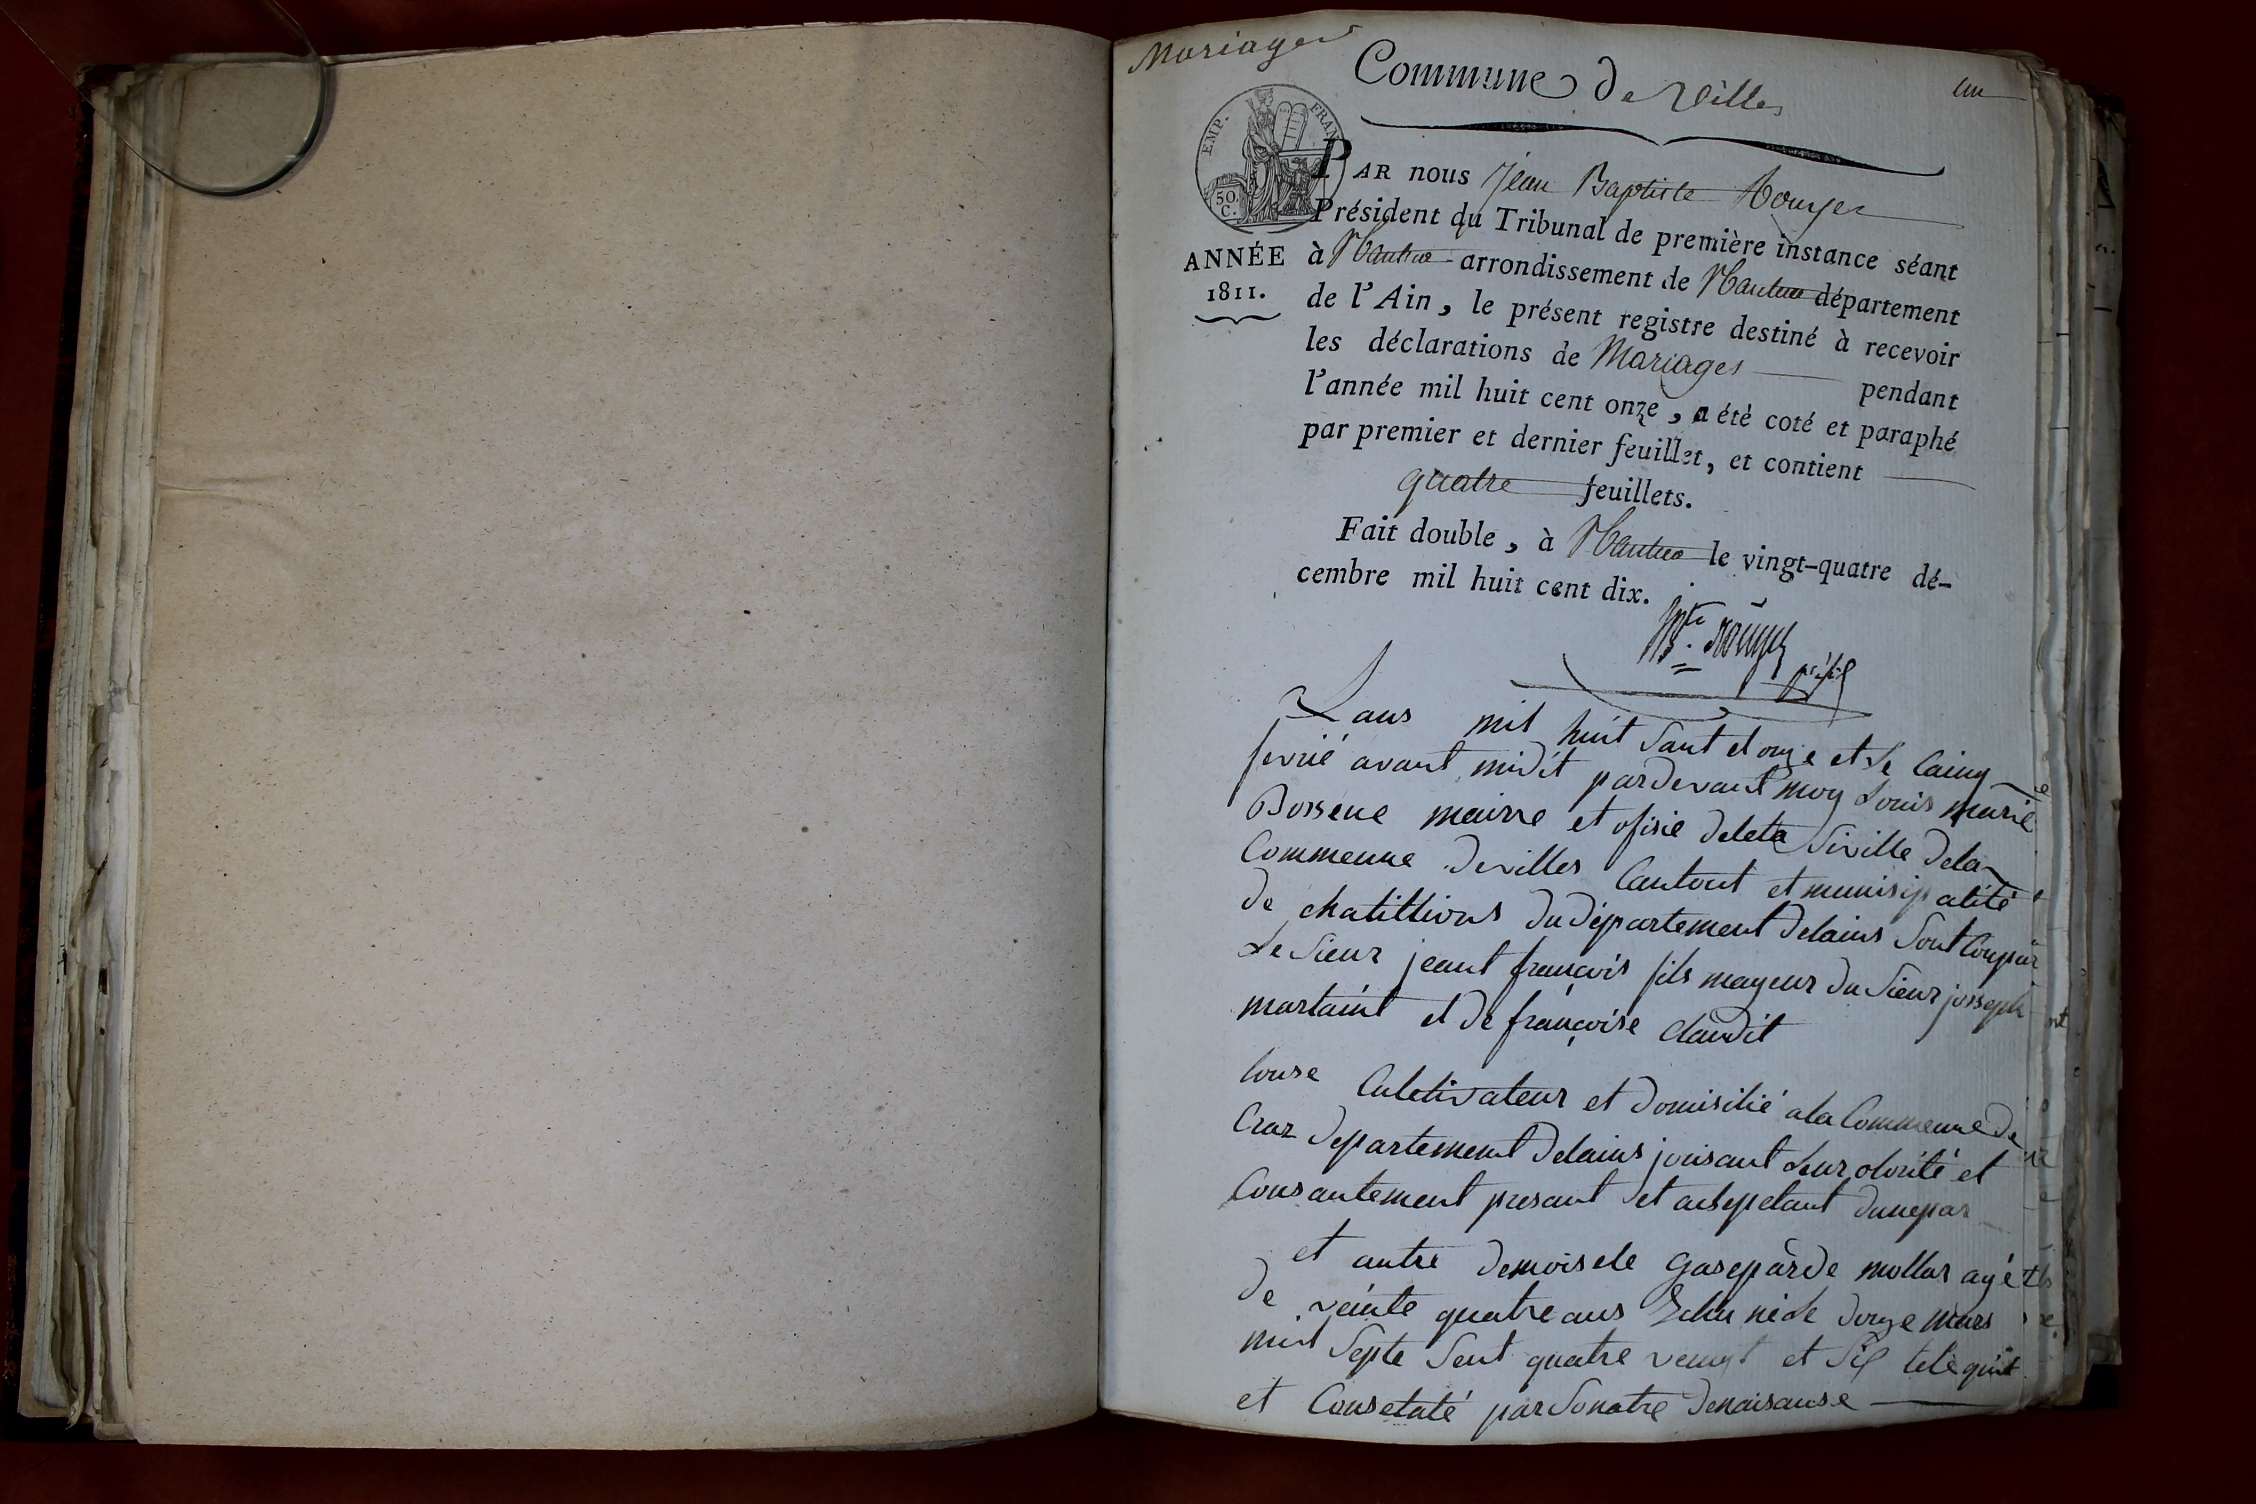 Mariages
un
Commune de Villes
EMP. FRAN
50. C.
ANNÉE
1811.
PAR nous Jean Baptiste Rouyer
Président du Tribunal de première instance séant
à Nantua arrondissement de Nantua département
de l'Ain, le présent registre destiné à recevoir
les déclarations de Mariages pendant
l'année mil huit cent onze, a été coté et paraphé
par premier et dernier feuillet, et contient
quatre feuillets.
Fait double, à Nantua le vingt-quatre dé-
cembre mil huit cent dix.
Lans mil huit Sant et onze et le Cainq
fevrié avant midit pardevant moy Louis marie
Bossene mairre et ofisié deleta Siville dela
Commenne de villes Cantout et munisipalité
de chatillions du département delains Sont Conpar
Le Sieur jeant françois fils mayeur du Sieur josseph
martaint et de françoise claudit
Culetivateur et domisilié ala Commenne de
Craz departement delains jouisant Leur olorité et
Consantement presant et aksepetant dunepar
et autre demoisele gasepârde mollar agé
de veinte quatre ans née Le douze mars
mil Septe Sent quatre veingt et Sis tele quit
et Consetaté par Sonatre denaisanse